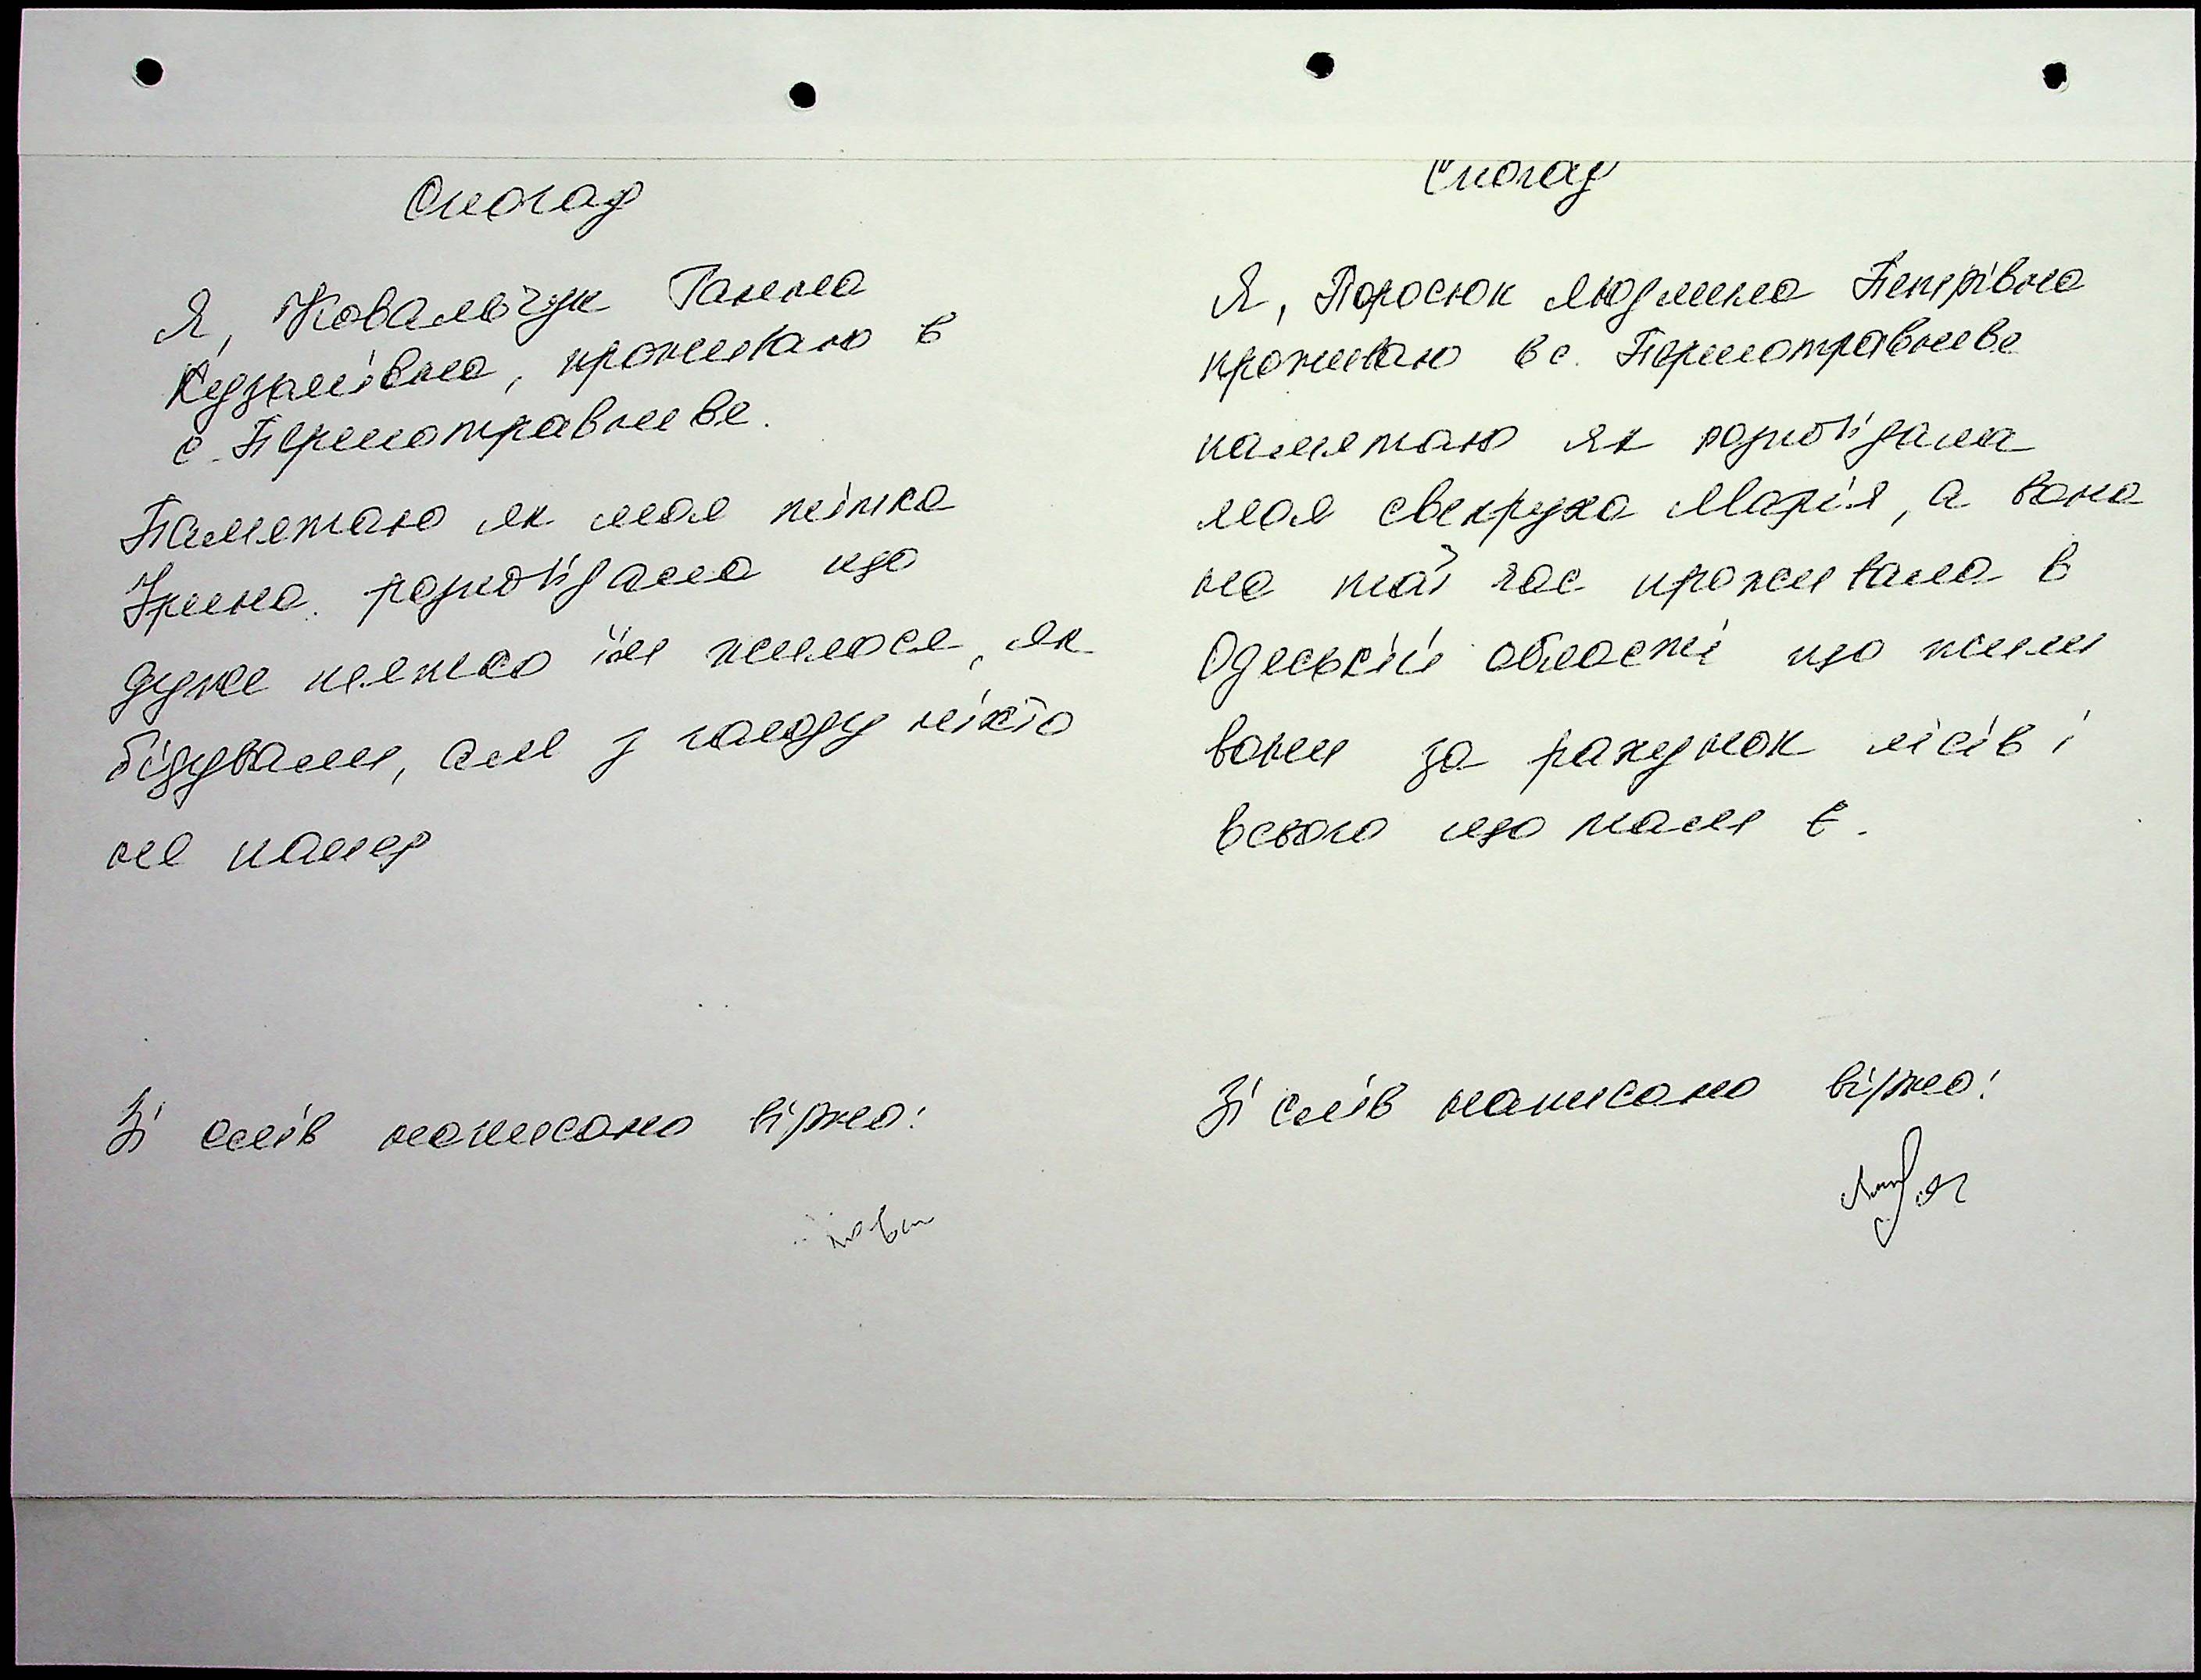 Спогад
Я, Ковальчук Ганна
Кузьмівна, проживаю в
с. Першотравневе.
Памятаю як моя тітка
Ірина розповідала що
дуже тяжко їм жилося, як
бідували, але з голоду ніхто
не памер
Зі слів написано вірно:
Спогад
Я, Поросюк Людмила Петрівна
проживаю в с. Першотравневе
памятаю як розповідала
моя свекруха Марія, а вона
на той час проживала в
Одеській області що жили
вони за рахунок лісів і
всього що там є.
Зі слів написано вірно: